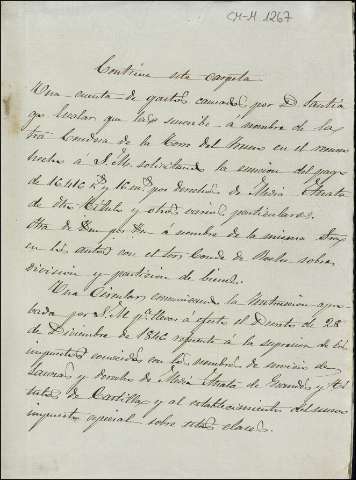 CM-M 1267
Contiene esta carpeta
Una cuenta de gastos causados por D. Santia
go que la suscribe a nombre de la
tra Condesa de la Torre del en el recurso
hecho a S.M. solicitando la del pago
de 16416 rs y 16 ms por derechos de Media Anata
de este Título y otros varios particulares.
Otra de por a nombre de la misma Sra
en los autos con el tror Conde de sobre
división y partición de bienes.
Una Circular comunicando la Instrucción apro
bada por S.M. pa llevar á efecto el Decreto de 28
de Diciembre de 1846 referente á la supresión de los
impuestos conocidos con los nombres de servicio de
Lanzas y derecho de Media Anata de Grandes y Tí
tulos de Castilla, y al establecimiento del nuevo
impuesto especial sobre estas clases.